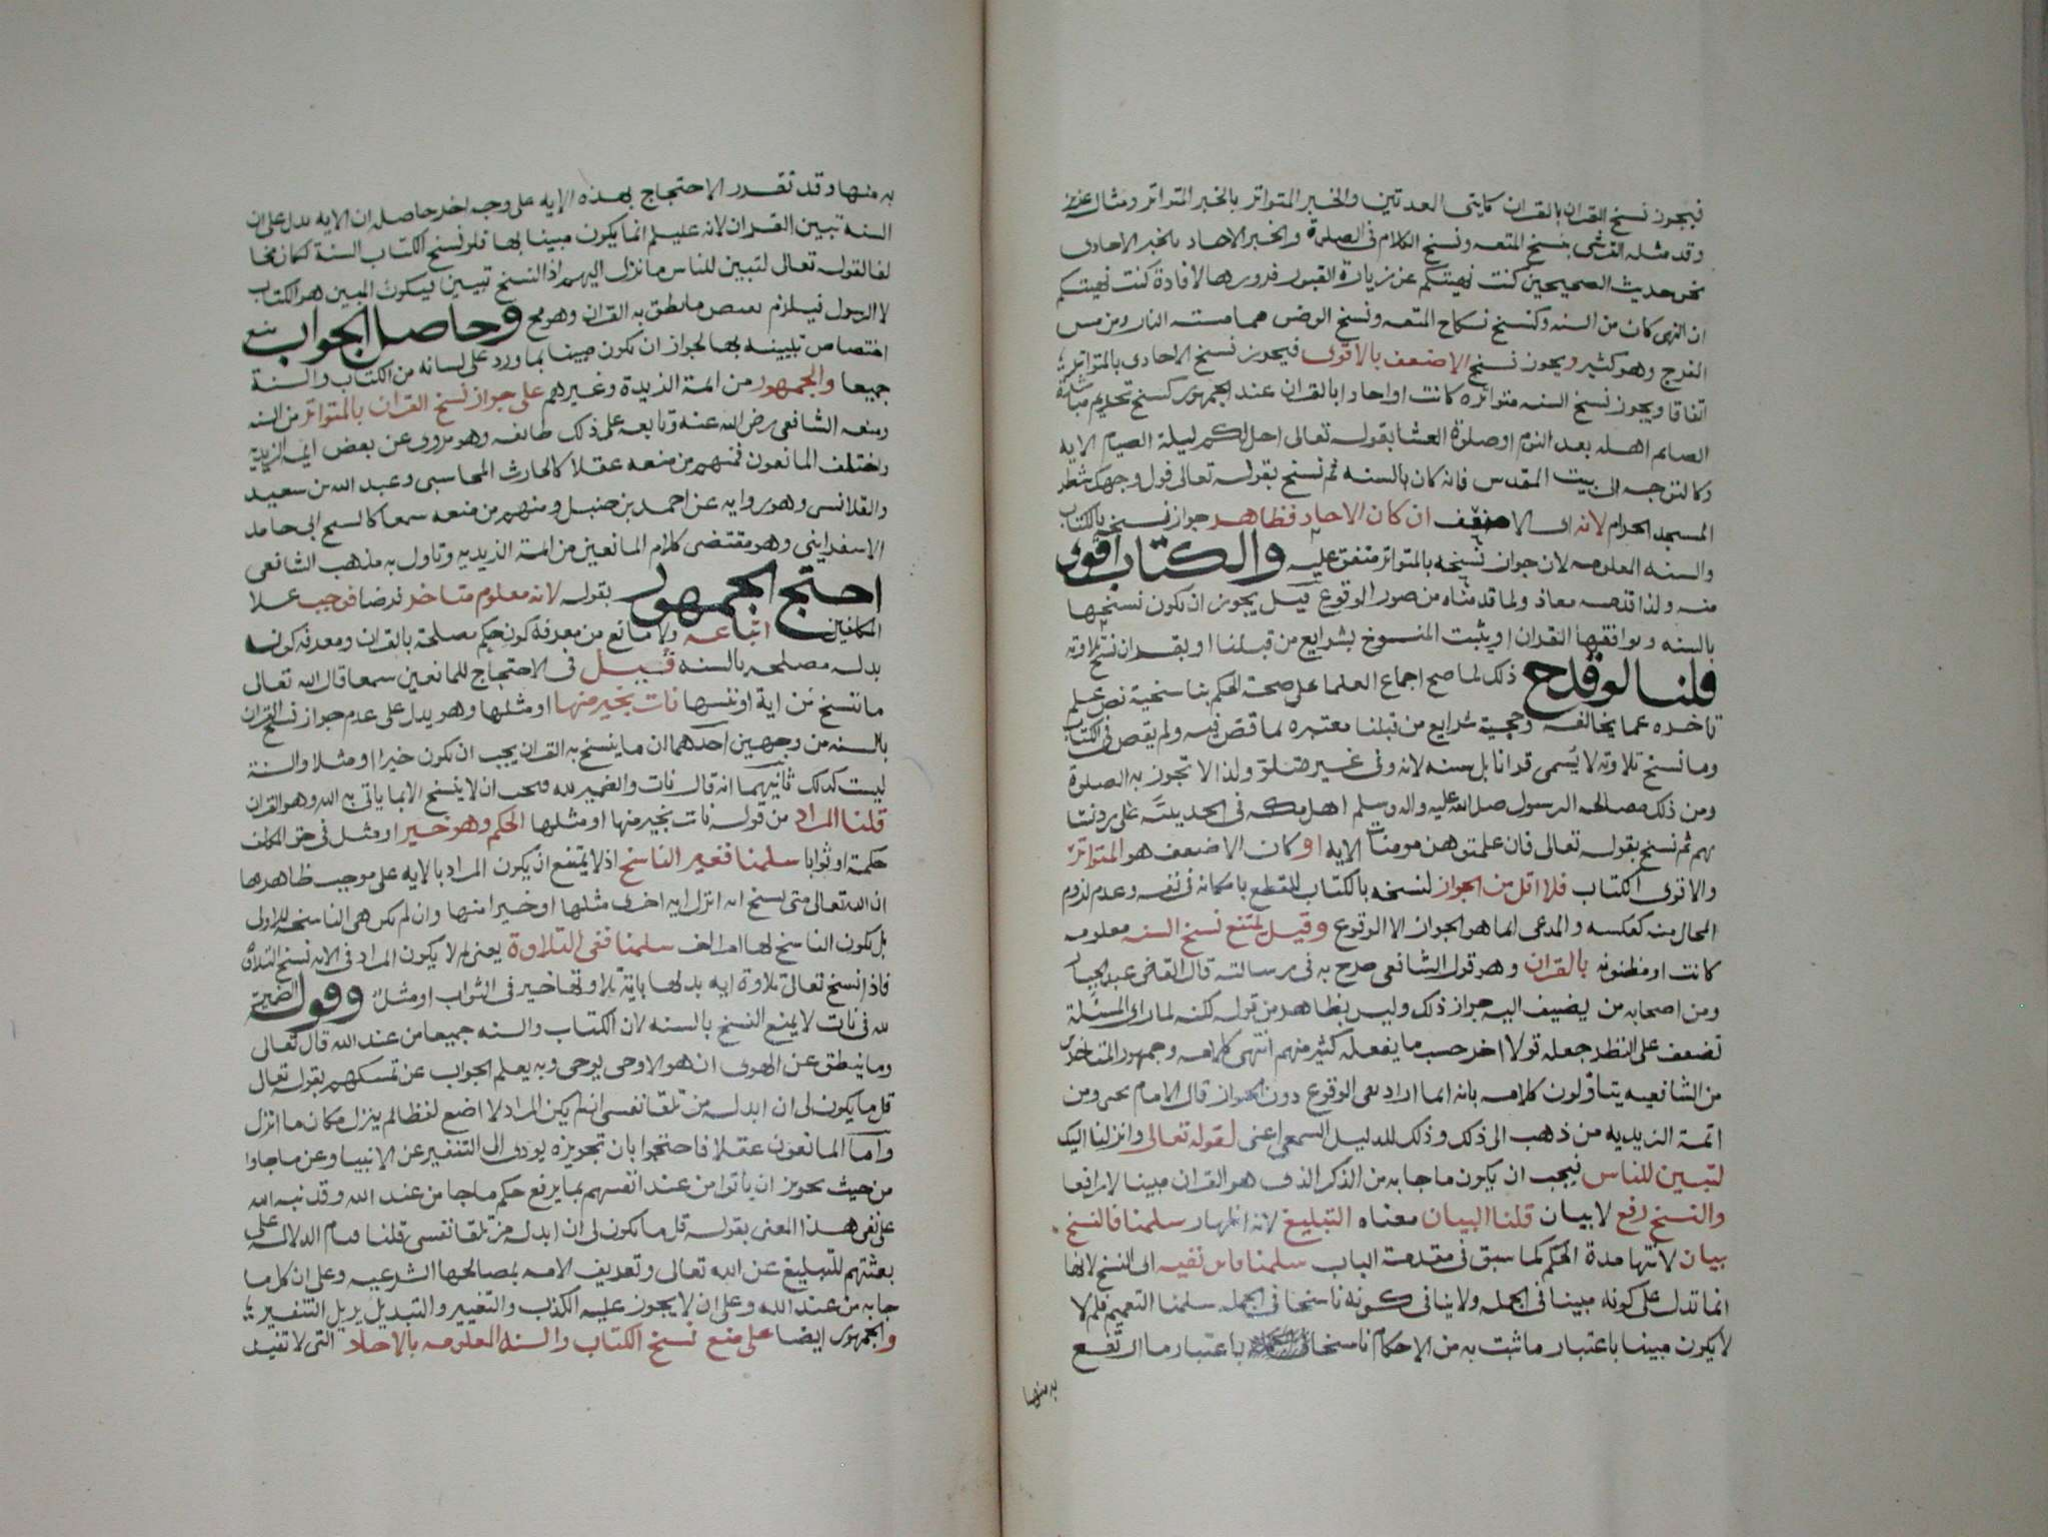 فيجوز نسخ القران بالقران كايتى العدتين والخبر المتواتر بالخبر المتواتر ومثاله عزيز
وقد مثله القرشى بنسخ المتعه ونسخ الكلام فى الصلوة والخبر الاحاد بالخبر الاحادى
نحو حديث الصحيحين كنت نهيتكم عن زيارة القبور فزوروها لافادة كنت نهيتكم
ان النهى كان من السنه وكنسخ نكاح المتعه ونسخ الوضى مما مسته النار ومن مس
الفرج وهو كثير ويجوز نسخ الاضعف بالاقوى فيجوز نسخ الاحادى بالمتواتر
اتفاقا ويجوز نسخ السنه متواتره كانت او احادا بالقران عند الجمهور كنسخ تحريم مباشرة
الصائم اهله بعد النوم او صلوة العشا بقوله تعالى احل لكم ليلة الصيام الايه
وكالتوجه الى بيت المقدس فانه كان بالسنه ثم نسخ بقوله تعالى فول وجهك شطر
المسجد الحرام لانه اى الاضعف ان كان الاحاد فظاهر جواز نسخه بالكتاب
والسنه المعلومه لان جواز نسخه بالمتواتر متفق عليه والكتاب اقوى
منه ولذا قدمه معاذ ولما قدمناه من صور الوقوع قيل يجوز ان يكون نسخها
بالسنه ويوافقها القران او يثبت المنسوخ بشرايع من قبلنا او بقران نسخ تلاوته
قلنا لو قدح ذلك لما صح اجماع العلما على صحة الحكم بناسخية نص علم
تاخره عما يخالفه وحجية شرايع من قبلنا معتبره لما قص فيه ولم يقص فى الكتاب
وما نسخ تلاوته لا يسمى قرانا بل سنه لانه وفى غير متلو ولذا لا تجوز به الصلوة
ومن ذلك مصالحه الرسول صلى الله عليه واله وسلم اهل مكه فى الحديبية على رد نسا
يهم ثم نسخ بقوله تعالى فان علمتموهن مومنات الايه او كان الاضعف هو المتواتر
والاقوى الكتاب فلا اقل من الجواز لنسخه بالكتاب للقطع بامكانه فى نفسه وعدم لزوم
المحال منه كعكسه والمدعى انما هو الجواز الا الوقوع وقيل يمتنع نسخ السنه معلومه
كانت او مظنونه بالقران وهو قول الشافعى صرح به فى رسالته قال القاضى عبد الجبار
ومن اصحابه من يضيف اليه جواز ذلك وليس بظاهر من قوله لكنه لما راى المسئلة
تضعف على النظر جعله قولا اخر حسب ما يفعله كثير منهم انتهى كلامه وجمهور المتاخرين
من الشافعيه يتاولون كلامه بانه انما اراد نفى الوقوع دون الجواز قال الامام يحيى ومن
ائمة الزيديه من ذهب الى ذلك وذلك للدليل السمعى اعنى لقوله تعالى وانزلنا اليك
لتبين للناس فيجب ان يكون ما جا به من الذكر الذى هو القران مبينا لا رافعا
والنسخ رفع لا بيان قلنا البيان معناه التبليغ لانه اظهار سلمنا فالنسخ
بيان لانتها مدة الحكم كما سبق فى مقدمة الباب سلمنا فاين نفيه اى النسخ لانها
انما تدل على كونه مبينا فى الجمله ولا ينافى كونه ناسخا فى الجمله سلمنا التعميم فلم لا
لا يكون مبينا باعتبار ما ثبت به من الاحكام ناسخا باعتبار ما ارتفع
به منها
به منها وقد تقرر الاحتجاج بهذه الايه على وجه اخر حاصله ان الايه تدل على ان
السنه تبين القران لانه عليلم انما يكون مبينا بها فلو نسخ الكتاب السنة كان مخا
لفا لقوله تعالى لتبين للناس ما نزل اليهم اذ النسخ تبيين فيكون المبين هو الكتاب
لا الرسول فيلزم نقيض ما نطق به القران وهو مح وحاصل الجواب منع
اختصاص تبيينه بها لجواز ان يكون مبينا بما ورد على لسانه من الكتاب والسنة
جميعا والجمهور من ائمة الزيدية وغيرهم على جواز نسخ القران بالمتواتر من السنه
ومنعه الشافعى رضى الله عنه وتابعه على ذلك طائفه وهو مروى عن بعض ائمه الزيديه
واختلف المانعون فمنهم من منعه عقلا كالحارث المحاسبى وعبد الله بن سعيد
والقلانسى وهو روايه عن احمد بن حنبل ومنهم من منعه سمعا كالشيخ ابى حامد
الاسفراينى وهو مقتضى كلام المانعين من ائمة الزيديه وتاول به مذهب الشافعى
احتج الجمهور بقوله لانه معلوم متاخر فرضا فوجب علا
المكلفين اتباعه ولا مانع من معرفة كون حكم مصلحة بالقران ومعرفه كون
بدله مصلحه بالسنه قيل فى الاحتجاج للمانعين سمعا قال الله تعالى
ما ننسخ من اية او ننسها نات بخير منها او مثلها وهو يدل على عدم جواز نسخ القران
بالسنه من وجهين احدهما ان ما ينسخ به القران يجب ان يكون خيرا او مثلا والسنة
ليست كذلك ثانيهما انه قال نات والضمير لله فيجب ان لا ينسخ الا بما ياتى به الله وهو القران
قلنا المراد من قوله نات بخير منها او مثلها الحكم وهو خير او مثل فى حق المكلف
حكمة او ثوابا سلمنا فغير الناسخ اذ لا يمتنع ان يكون المراد بالايه على موجب ظاهرها
ان الله تعالى متى نسخ ايه انزل ايه اخرى مثلها او خيرا منها وان لم تكن هى الناسخه للاولى
بل يكون الناسخ لها امرا الف سلمنا ففى التلاوة يعنى لم لا يكون المراد فى الايه نسخ التلاوة
فاذا نسخ تعالى تلاوة ايه بدلها باية تلاوتها خير فى الثواب او مثل وقوله الضمير
لله فى نات لا يمنع النسخ بالسنه لان الكتاب والسنه جميعا من عند الله قال تعالى
وما ينطق عن الهوى ان هو الا وحى يوحى وبه يعلم الجواب عن تمسكهم بقوله تعالى
قل ما يكون لى ان ابدله من تلقا نفسى انه لم يكن المراد لا اضع لفظا لم ينزل مكان ما انزل
واما المانعون عقلا فاحتجوا بان تجويزه يودى الى التنفير عن الانبيا وعن ما جاوا
من حيث تجويز ان ياتوا من عند انفسهم بما يرفع حكم ما جا من عند الله وقد نبه الله
على نفى هذا المعنى بقوله قل ما يكون لى ان ابدله من تلقا نفسى قلنا قيام الدلاله على
بعثتهم للتبليغ عن الله تعالى وتعريف الامه بمصالحها الشرعيه وعلى ان كل ما
جا به من عند الله وعلى ان لا يجوز عليه الكذب والتغيير والتبديل يزيل التنفير
والجمهور ايضا على منع نسخ الكتاب والسنه المعلومه بالاحاد التى لا تفيد